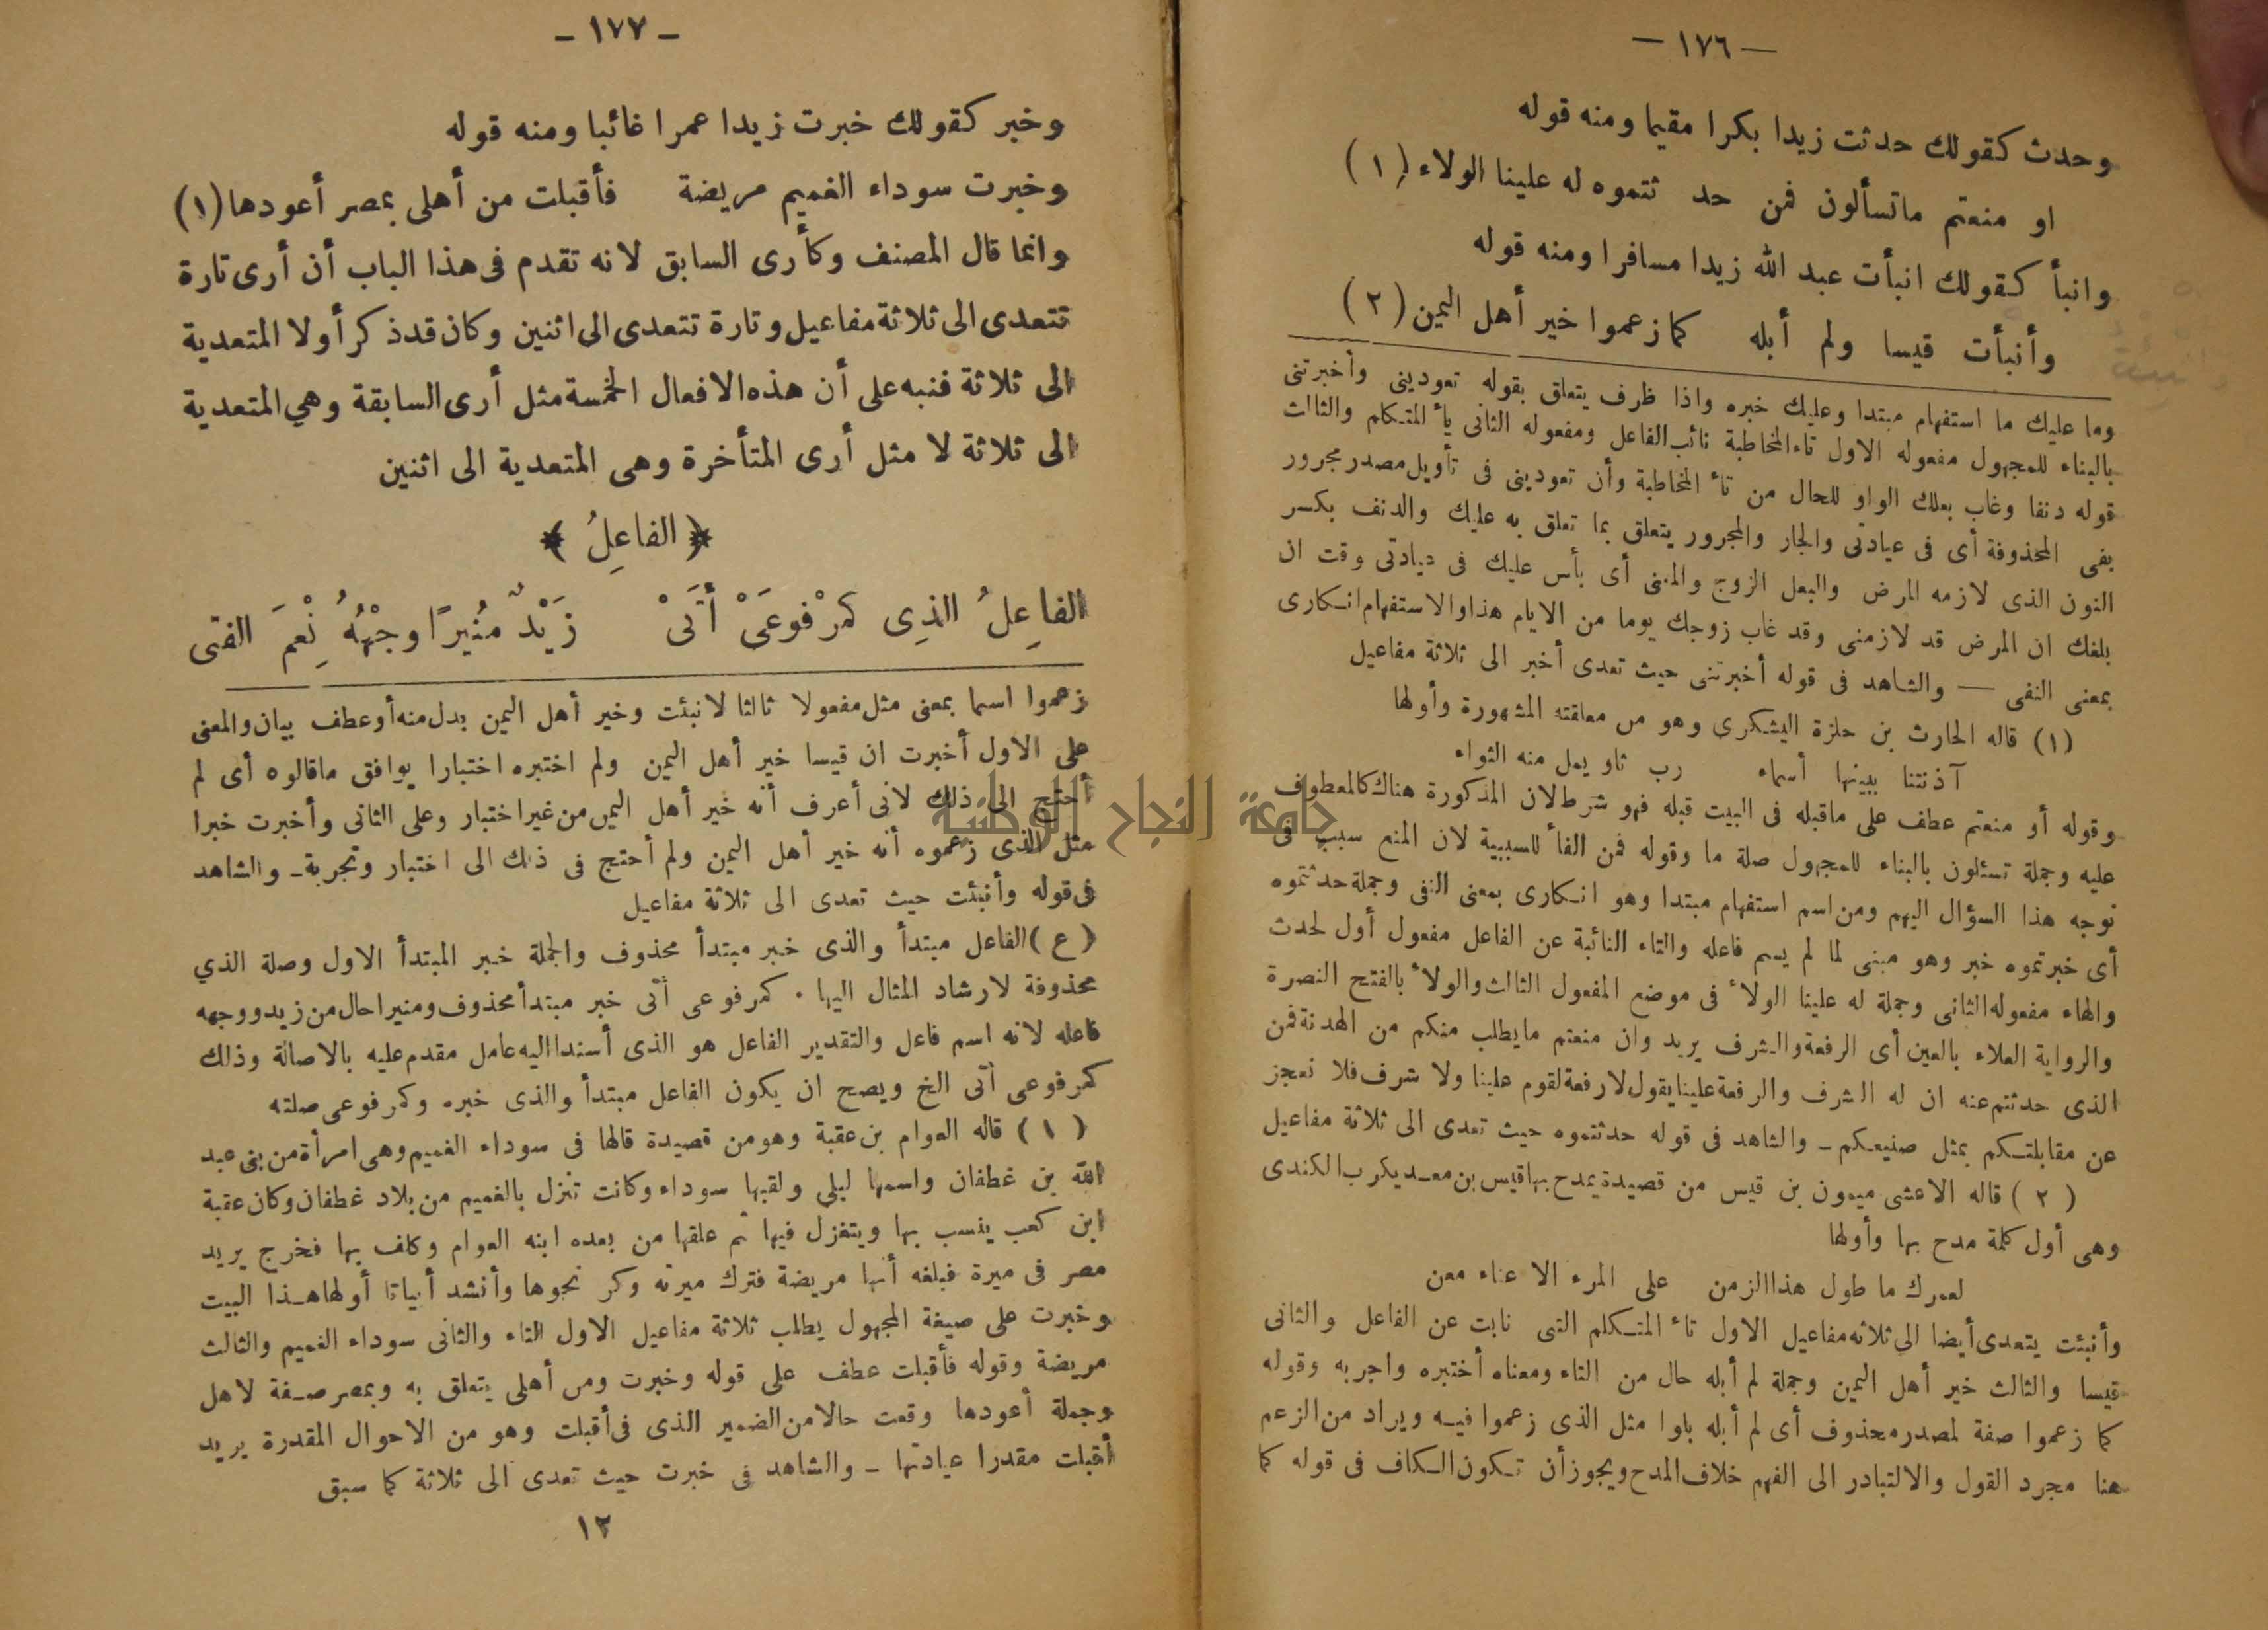 — ١٧٦ —
وحدث كقولك حدثت زيدا بكرا مقيما ومنه قوله
او منعتم ماتسألون فمن حد ثتموه له علينا الولاء (١)
وانبأ كقولك انبأت عبد الله زيدا مسافرا ومنه قوله
وأنبأت قيسا ولم أبله كما زعموا خير أهل اليمن (٢)
وما عليك ما استفهام مبتدا وعليك خبره واذا ظرف يتعلق بقوله تعودينى وأخبرتنى
بالبناء للمجهول مفعوله الاول تاءالمخاطبة نائب الفاعل ومفعوله الثانى يأ المتكلم والثالث
قوله دنفا وغاب بعلك الواو للحال من تأ المخاطبة وأن تعودينى فى تأويل مصدر مجرور
بفى المحذوفة أى فى عيادتى والجار والمجرور يتعلق بما تعلق به عليك والدنف بكسر
النون الذى لازمه المرض والبعل الزوج والمعنى أى بأس عليك فى عيادتى وقت ان
بلغك ان المرض قد لازمنى وقد غاب زوجك يوما من الايام هذا والاستفهام انكارى
بمعنى النفى — والشاهد فى قوله أخبرتنى حيث تعدى أخبر الى ثلاثة مفاعيل
(١) قاله الحارث بن حلزة اليشكرى وهو من معلقته المشهورة وأولها
آذنتنا ببينها أسماء رب ثاو يمل منه الثواء
وقوله أو منعتم عطف على ماقبله فى البيت قبله فهو شرط لان المذكورة هناك كالمعطوف
عليه وجملة تسئلون بالبناء للمجهول صلة ما وقوله فمن الفأ للسببية لان المنع سبب فى
توجه هذا السؤال اليهم ومن اسم استفهام مبتدا وهو انكارى بمعنى النفى وجملة حدثتموه
أى خبرتموه خبر وهو مبنى لما لم يسم فاعله والتاء النائبة عن الفاعل مفعول أول لحدث
والهاء مفعوله الثانى وجملة له علينا الولأ فى موضع المفعول الثالث والولأ بالفتح النصرة
والرواية العلاء بالعين أى الرفعة والشرف يريد وان منعتم مايطلب منكم من الهدنة فمن
الذى حدثتم عنه ان له الشرف والرفعة علينا يقول لا رفعة لقوم علينا ولا شرف فلا نعجز
عن مقابلتكم بمثل صنيعكم — والشاهد فى قوله حدثتموه حيث تعدى الى ثلاثة مفاعيل
(٢) قاله الاعشى ميمون بن قيس من قصيدة يمدح بها قيس بن معديكرب الكندى
وهى أول كلمة مدح بها وأولها
لعمرك ما طول هذا الزمن على المرء الا عناء معن
وأنبئت يتعدى أيضا الى ثلاثه مفاعيل الاول تأ المتكلم التى نابت عن الفاعل والثانى
قيسا والثالث خير أهل اليمن وجملة لم أبله حال من التاء ومعناه أختبره واجربه وقوله
كما زعموا صفة لمصدر محذوف أى لم أبله باوا مثل الذى زعموا فيه ويراد من الزعم
هنا مجرد القول والالتبادر الى الفهم خلاف المدح ويجوز أن تكون الكاف فى قوله كما
— ١٧٧ —
وخبر كقولك خبرت زيدا عمرا غائبا ومنه قوله
وخبرت سوداء الغميم مريضة فأقبلت من أهلى بمصر أعودها (١)
وانما قال المصنف وكأرى السابق لانه تقدم فى هذا الباب أن أرى تارة
تتعدى الى ثلاثة مفاعيل وتارة تتعدى الى اثنين وكان قد ذكر أولا المتعدية
الى ثلاثة فنبه على أن هذه الافعال الخمسة مثل أرى السابقة وهي المتعدية
الى ثلاثة لا مثل أرى المتأخرة وهى المتعدية الى اثنين
﴿ الفاعِلُ ﴾
الفاعِلُ الذِى كمَرْفوعَىْ أتَىْ زَيْدٌ مُنُيرًا وجْهُهُ نِعْمَ الفتى
زعموا اسما بمعنى مثل مفعولا ثالثا لانبئت وخير أهل اليمن بدل منه أو عطف بيان والمعنى
على الاول أخبرت ان قيسا خير أهل اليمن ولم اختبره اختبارا يوافق ماقالوه أى لم
أحتج الى ذلك لانى أعرف أنه خير أهل اليمن من غير اختبار وعلى الثانى وأخبرت خبرا
مثل الذى زعموه أنه خير أهل اليمن ولم أحتج فى ذلك الى اختبار وتجربة — والشاهد
فى قوله وأنبئت حيث تعدى الى ثلاثة مفاعيل
(ع) الفاعل مبتدأ والذى خبر مبتدأ محذوف والجملة خبر المبتدأ الاول وصلة الذي
محذوفة لارشاد المثال اليها . كمرفوعى أتى خبر مبتدأ محذوف ومنيرا حال من زيد ووجهه
فاعله لانه اسم فاعل والتقدير الفاعل هو الذى أسند اليه عامل مقدم عليه بالاصالة وذلك
كمرفوعى أتى الخ ويصح ان يكون الفاعل مبتدأ والذى خبره وكمرفوعى صلته
(١) قاله العوام بن عقبة وهو من قصيدة قالها فى سوداء الغميم وهى امرأة من بنى عبد
الله بن غطفان واسمها ليلى ولقبها سوداء وكانت تنزل بالغميم من بلاد غطفان وكان عقبة
ابن كعب ينسب بها ويتغزل فيها ثم علقها من بعده ابنه العوام وكلف بها فخرج يريد
مصر فى ميرة فبلغه أنها مريضة فترك ميرته وكر نحوها وأنشد أبياتا أولها هذا البيت
وخبرت على صيغة المجهول يطلب ثلاثة مفاعيل الاول التاء والثانى سوداء الغميم والثالث
مريضة وقوله فأقبلت عطف على قوله وخبرت ومن أهلى يتعلق به وبمصر صفة لاهل
وجملة أعودها وقعت حالا من الضمير الذى فى أقبلت وهو من الاحوال المقدرة يريد
أقبلت مقدرا عيادتها — والشاهد فى خبرت حيث تعدى الى ثلاثة كما سبق
١٢
جامعة النجاح الوطنية